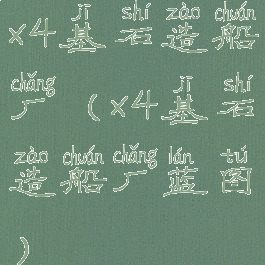 jī shí zào chuán
×4基石造船
chǎng jī shí
厂（×4基石
zào chuán chǎng lán tú
造船厂蓝图
）